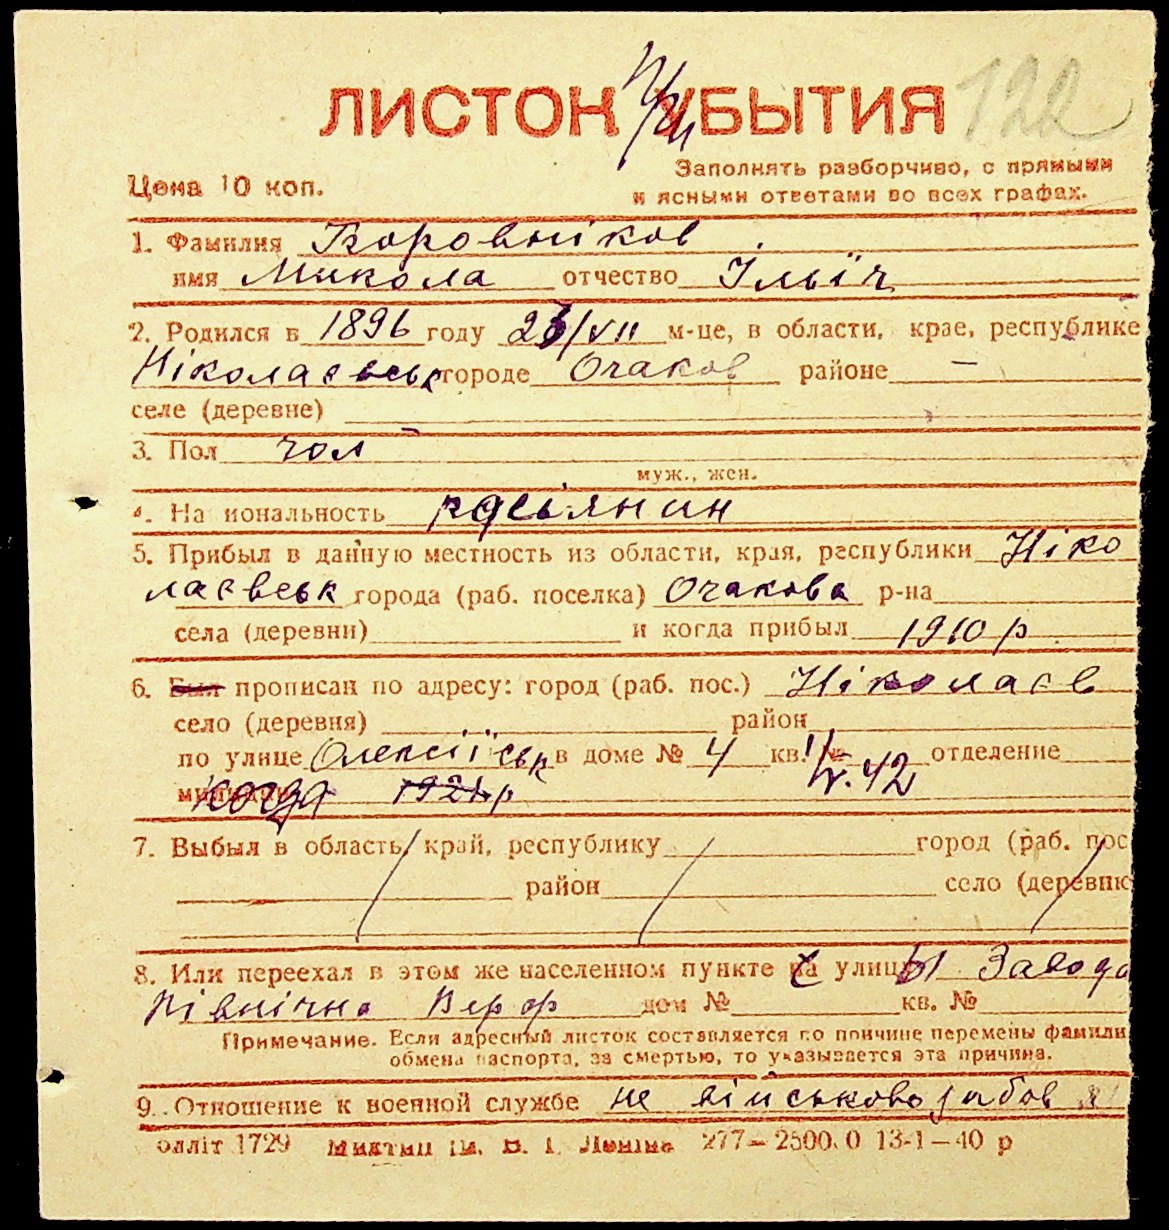 ЛИСТОК УБЫТИЯ 122
Заполнять разборчиво, с прямыми
Цена 10 коп. и ясными ответами во всех графах.
1. Фамилия Боровніков
имя Микола отчество Ільїч
2. Родился в 1896 году 23/VII м-це, в области, крае, республике
Ніколаєвськ городе Очаков районе —
селе (деревне)
3. Пол чол
муж., жен.
4. На иональность росіянин
5. Прибыл в данную местность из области, края, республики Ніко
лаєвськ города (раб. поселка) Очакова р-на
села (деревни) и когда прибыл 1910 р
6. Был прописан по адресу: город (раб. пос.) Ніколаєв
село (деревня) район
по улице Олексіїськ в доме № 4 кв. № 42 отделение
когда 1921 р
7. Выбыл в область, край, республику город (раб. пос
район село (деревню
8. Или переехал в этом же населенном пункте на улиц Завода
Північна Верф дом № кв. №
Примечание. Если адресный листок составляется по причине перемены фамили
обмена паспорта, за смертью, то указывается эта причина.
9. Отношение к военной службе не військовозабов
Оббліт 1729 277—2500.0 13-1—40 р